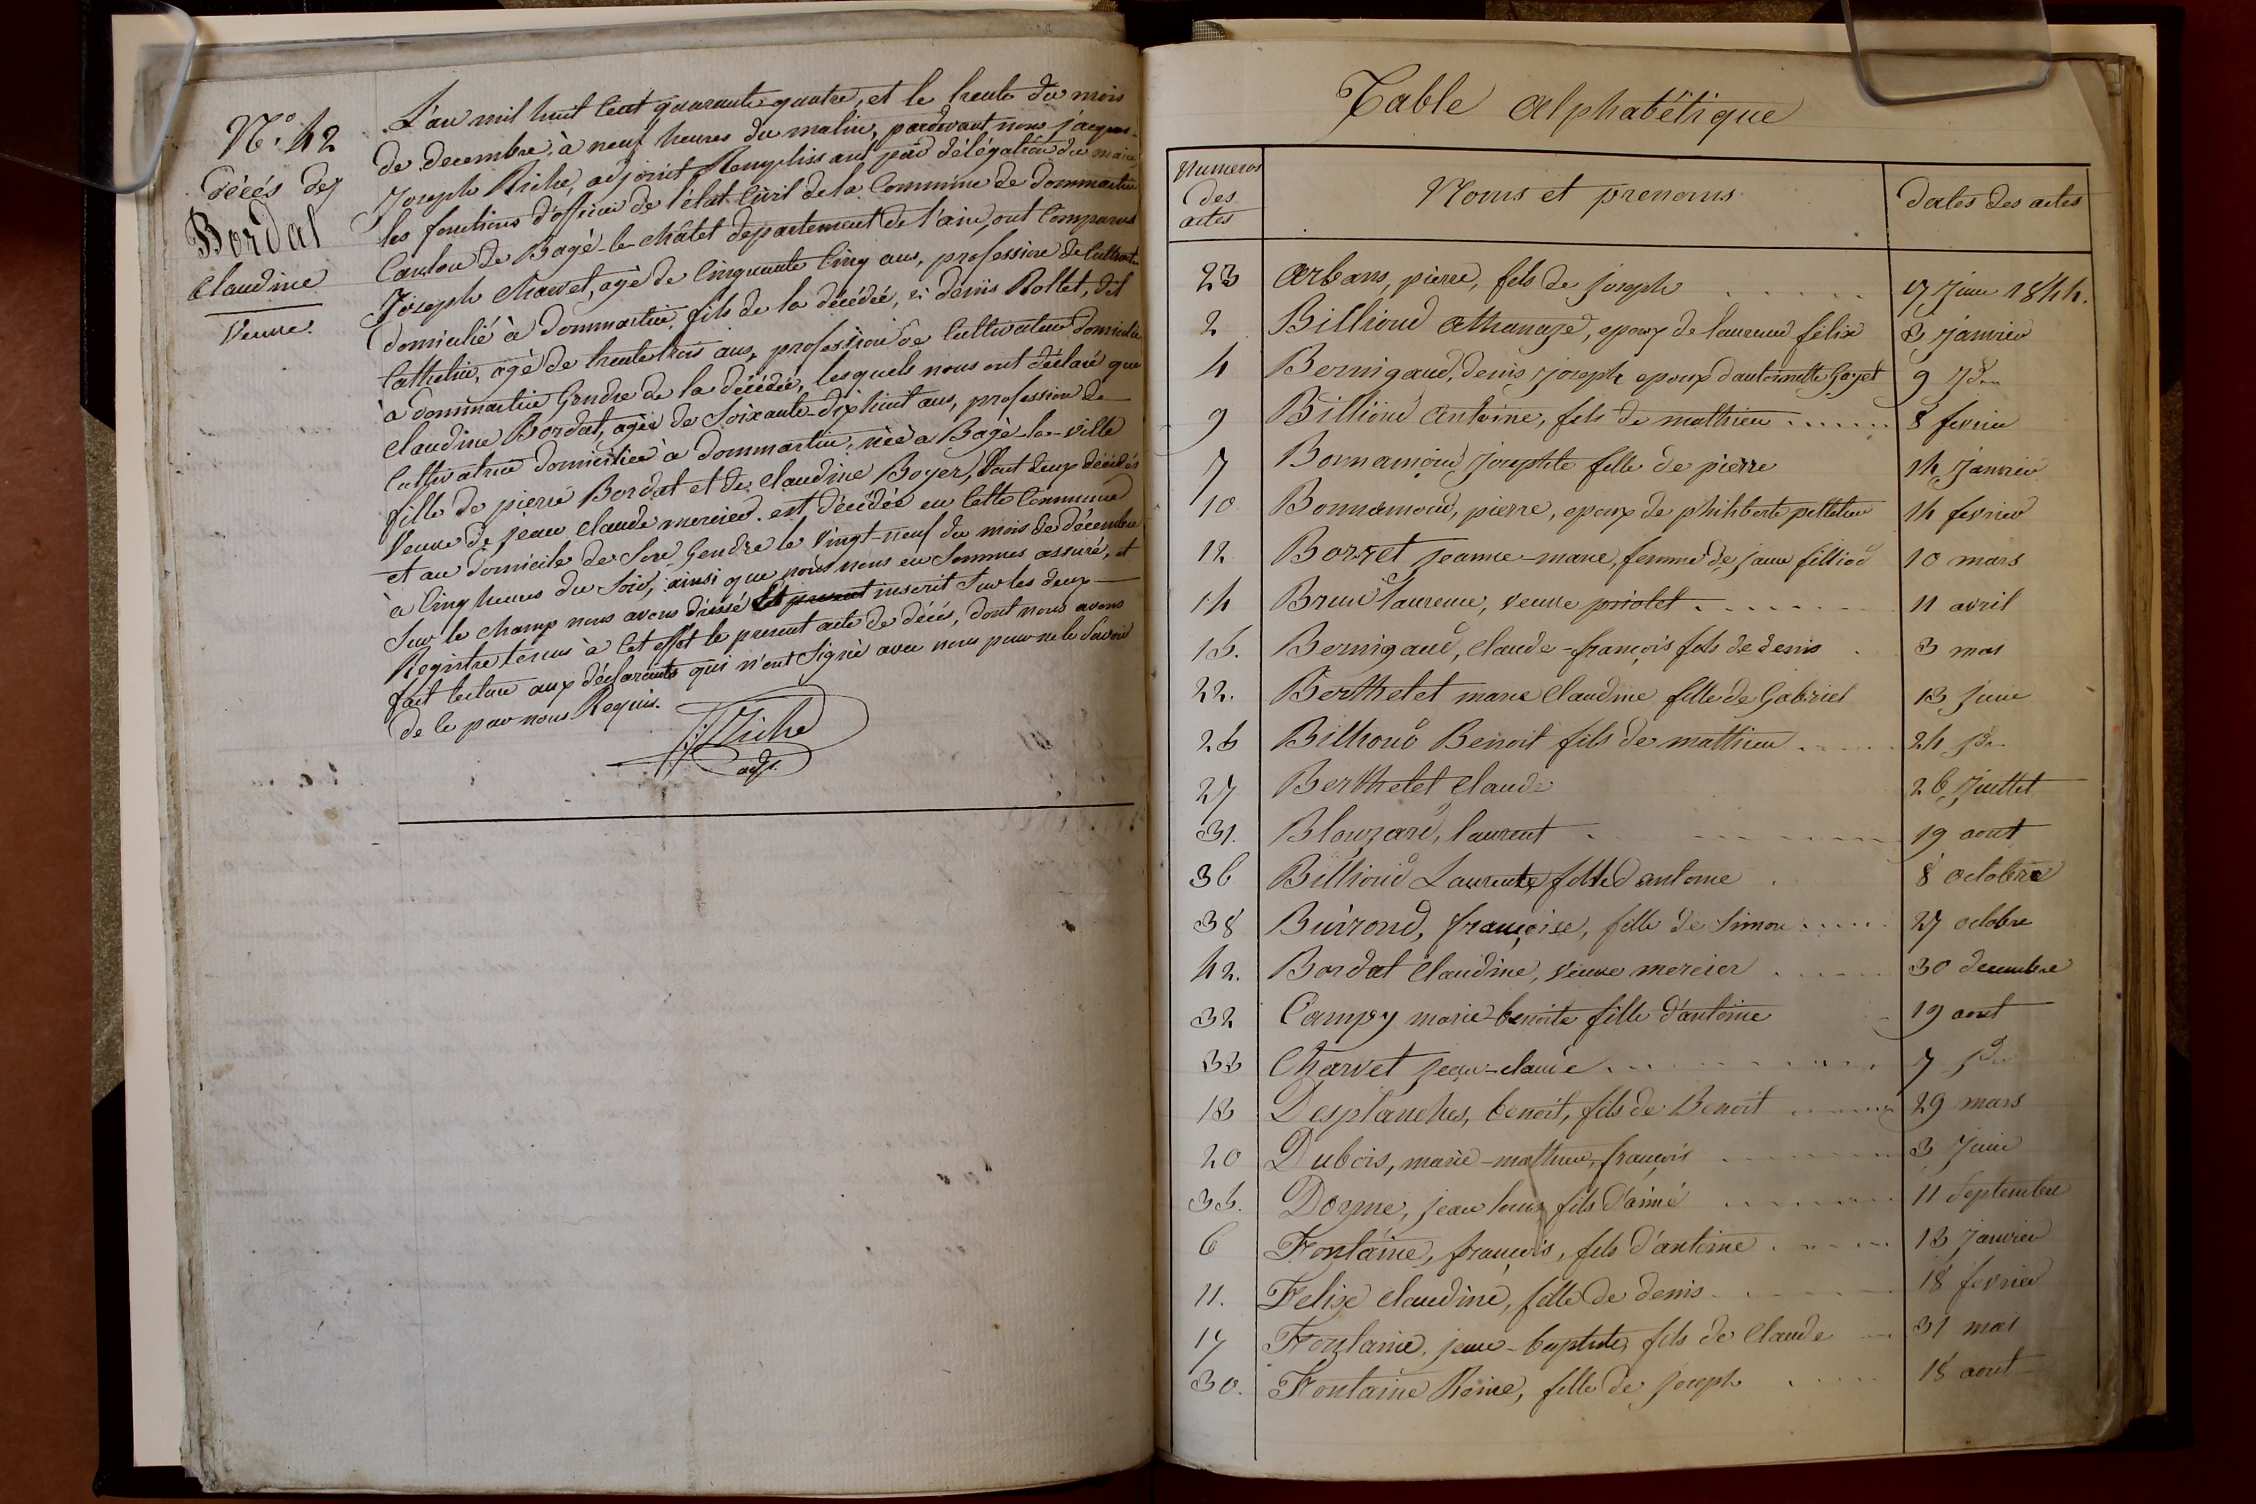 N.° 42
décés de
Bordat
Claudine
Veuve.
L'an mil huit cent quarante quatre, et le trente du mois
de decembre, à neuf heures du matin, pardevant nous jacques
Joseph Riche, adjoint Remplissant par délégation du maire
les fonctions d'officier de l'état Civil de la Commune de dommartin
Canton de Bagé-le-châtel departement de l'ain, ont Comparus
Joseph Charvet, agé de Cinquante Cinq ans, profession de Cultivateur
domicilié à dommartin, fils de la décédée, et denis Rollet, dit
Cathelin, agé de trente trois ans, profession de Cultivateur domicilié
à dommartin Gendre de la décédée, lesquels nous ont déclaré que
Claudine Bordat, agée de Soixante-dix huit ans, profession de
Cultivatrice domiciliée à dommartin, née à Bagé-la-ville
fille de pierre Bordat et de Claudine Boyer, tout deux décédés
Veuve de jean claude mercier. est décédée en Cette Commune
et au domicile de Son Gendre le Vingt-neuf du mois de décembre
à Cinq heures du Soir, ainsi que nous nous en Sommes assuré, et
Sur le champ nous avons dressé et inscrit Sur les deux
Registre tenus à Cet effet le present acte de décés, dont nous avons
fait lecture aux déclarants qui n'ont Signé avec nous pour ne le Savoir
de le par nous Requis.
Riche
adj.
Table alphabétique
Numeros des actes Noms et prenoms dates des actes
23 Arbans, pierre, fils de joseph 17 Juin 1844.
2 Billioud Athanaze, epoux de laurence félix 3 janvier
4 Bernigaud, denis joseph epoux d'antoinette Goyet 9 Jdem
9 Billioud Antoine, fils de mathieu 8 fevrier
7 Bonnamour Josephte fille de pierre 14 Janvier
10 Bonnamour, pierre, epoux de philiberte pelletier 14 fevrier
12 Borret jeanne-marie, femme de jean filliod 10 mars
14 Brun laurence, veuve priolet 11 avril
15. Bernigaud, Claude-françois fils de denis 3 mai
22. Berthelet marie Claudine fille de Gabriel 13 juin
25 Billioud Benoit fils de mathieu 24 jdem
27 Berthelet Claude 26 Juillet
31. Blouzard, laurent 19 aout
36 Billioud Laurente, fille d'antoine 8 octobre
38 Buirond, françoise, fille de Simon 27 octobre
42. Bordat Claudine, veuve mercier 30 decembre
32 Campy marie-benoite fille d'antoine 19 aout
33 Charvet jean-claude 7 7bre
13 Desplanches, benoit, fils de Benoit 29 mars
20 Dubois, marie-mathieu, françois 3 Juin
35. Dorme, jean louis fils d'aimé 11 Septembre
6 Fontaine, françois, fils d'antoine 13 janvier
11. Felix Claudine, fille de denis 18 fevrier
17 Fontaine, jean-baptiste, fils de Claude 31 mai
30. Fontaine Reine, fille de joseph 18 aout